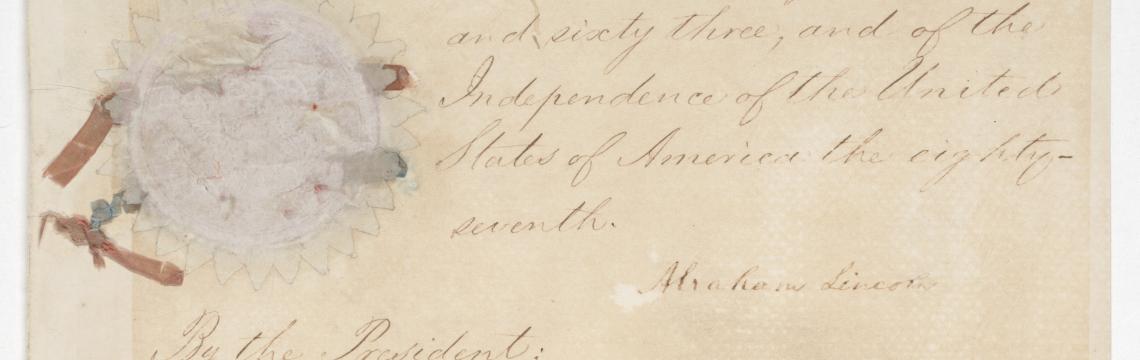 and sixty three, and of the
Independence of the United
States of America the eighty-
seventh.
Abraham Lincoln
By the President: